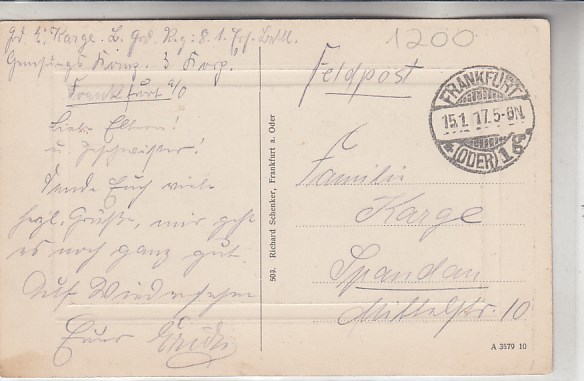 Grd. E. Karge. L. Grd. Rg: 8. 1. Ers. Batl.
Genesungs Komp. 3 Korp.
Frankfurt a/O
Liebe Eltern!
u. Geschwister!
Sende Euch viele
herzl. Grüße, mir geht
es noch ganz gut.
Auf Wiedersehen
Euer
1200
Feldpost
FRANKFURT
15.1.17.5-6N.
* (ODER) 1 g
Familie
Karge
Spandau
Mittelstr. 10
503. Richard Schenker, Frankfurt a. Oder
A 3579 10